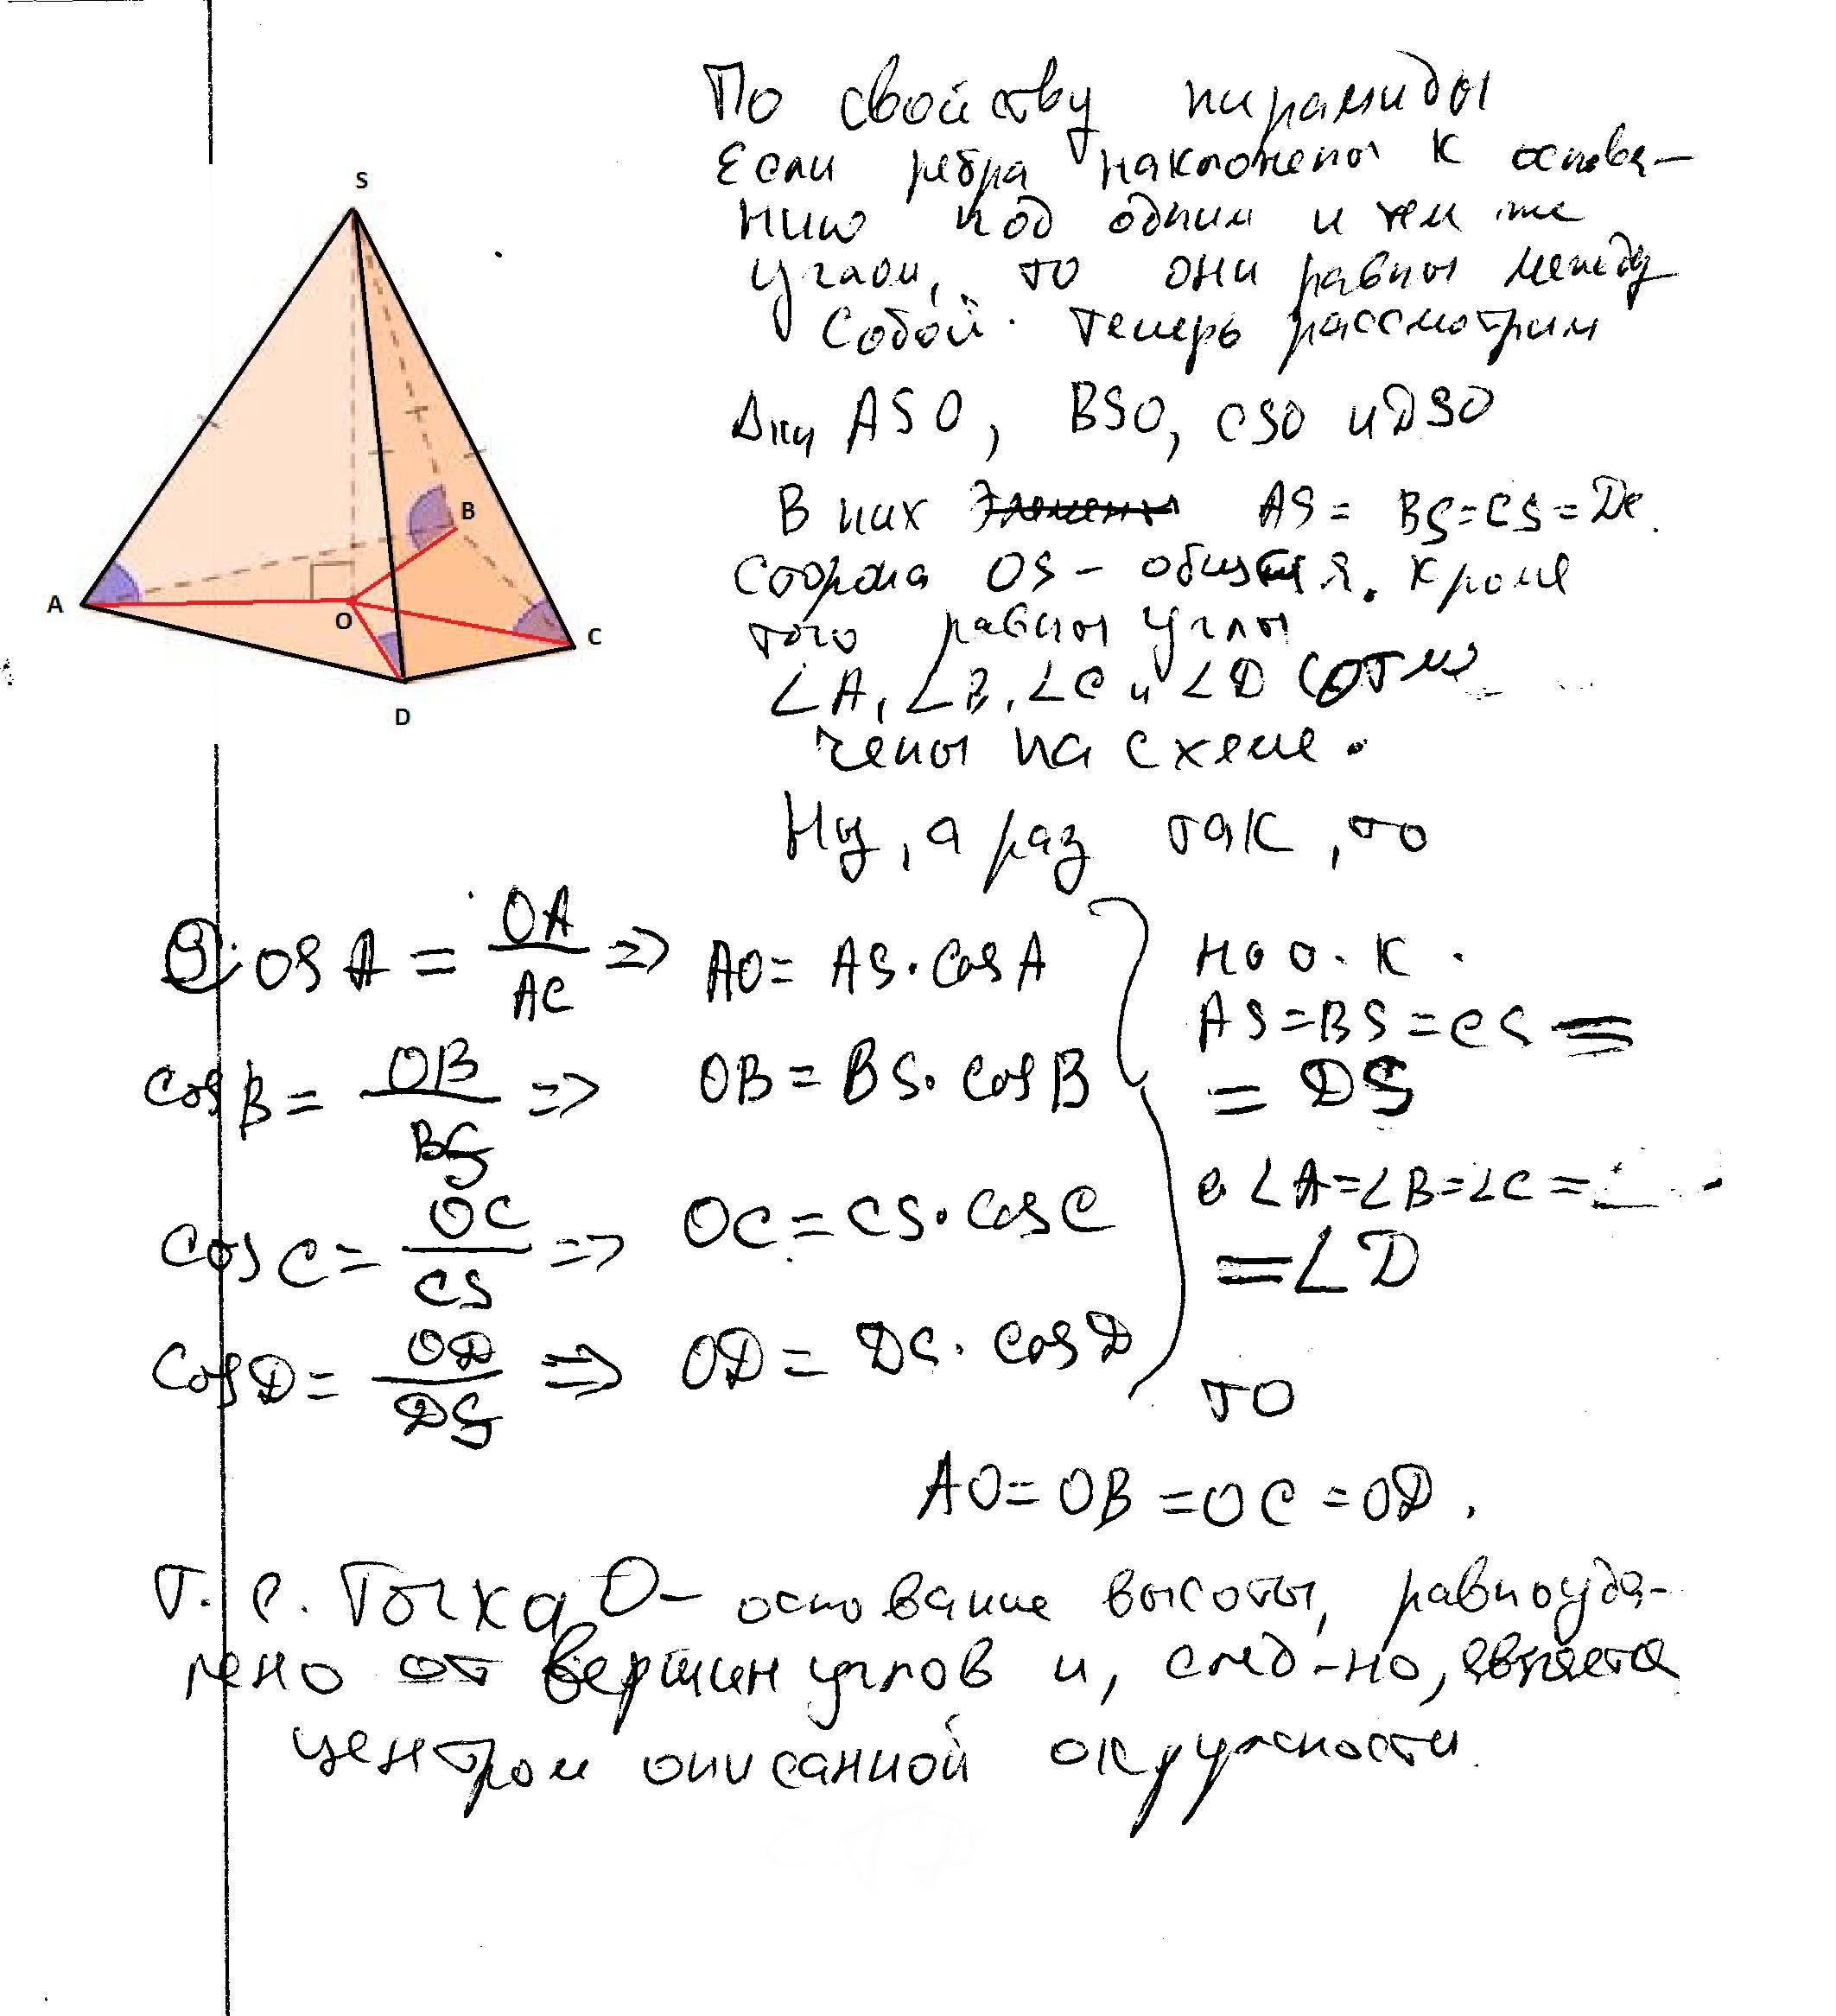 S
A
B
C
D
O
По свойству пирамиды
Если ребра наклонены к основа-
нию под одним и тем же
углом, то они равны между
собой. Теперь рассмотрим
Δки ASO, BSO, CSO и DSO
В них AS = BS = CS = DS.
Сторона OS - общая. Кроме
того равны углы
∠A, ∠B, ∠C и ∠D (отме
чены на схеме.
Ну, а раз так, то
cos A = OA/AC => AO = AS · cos A
cos B = OB/BS => OB = BS · cos B
cos C = OC/CS => OC = CS · cos C
cos D = OD/DS => OD = DS · cos D
но т.к.
AS = BS = CS =
= DS
∠A = ∠B = ∠C =
= ∠D
то
AO = OB = OC = OD.
Т. е. Точка O - основание высоты, равноуда-
лено от вершин углов и, след-но, является
центром описанной окружности.